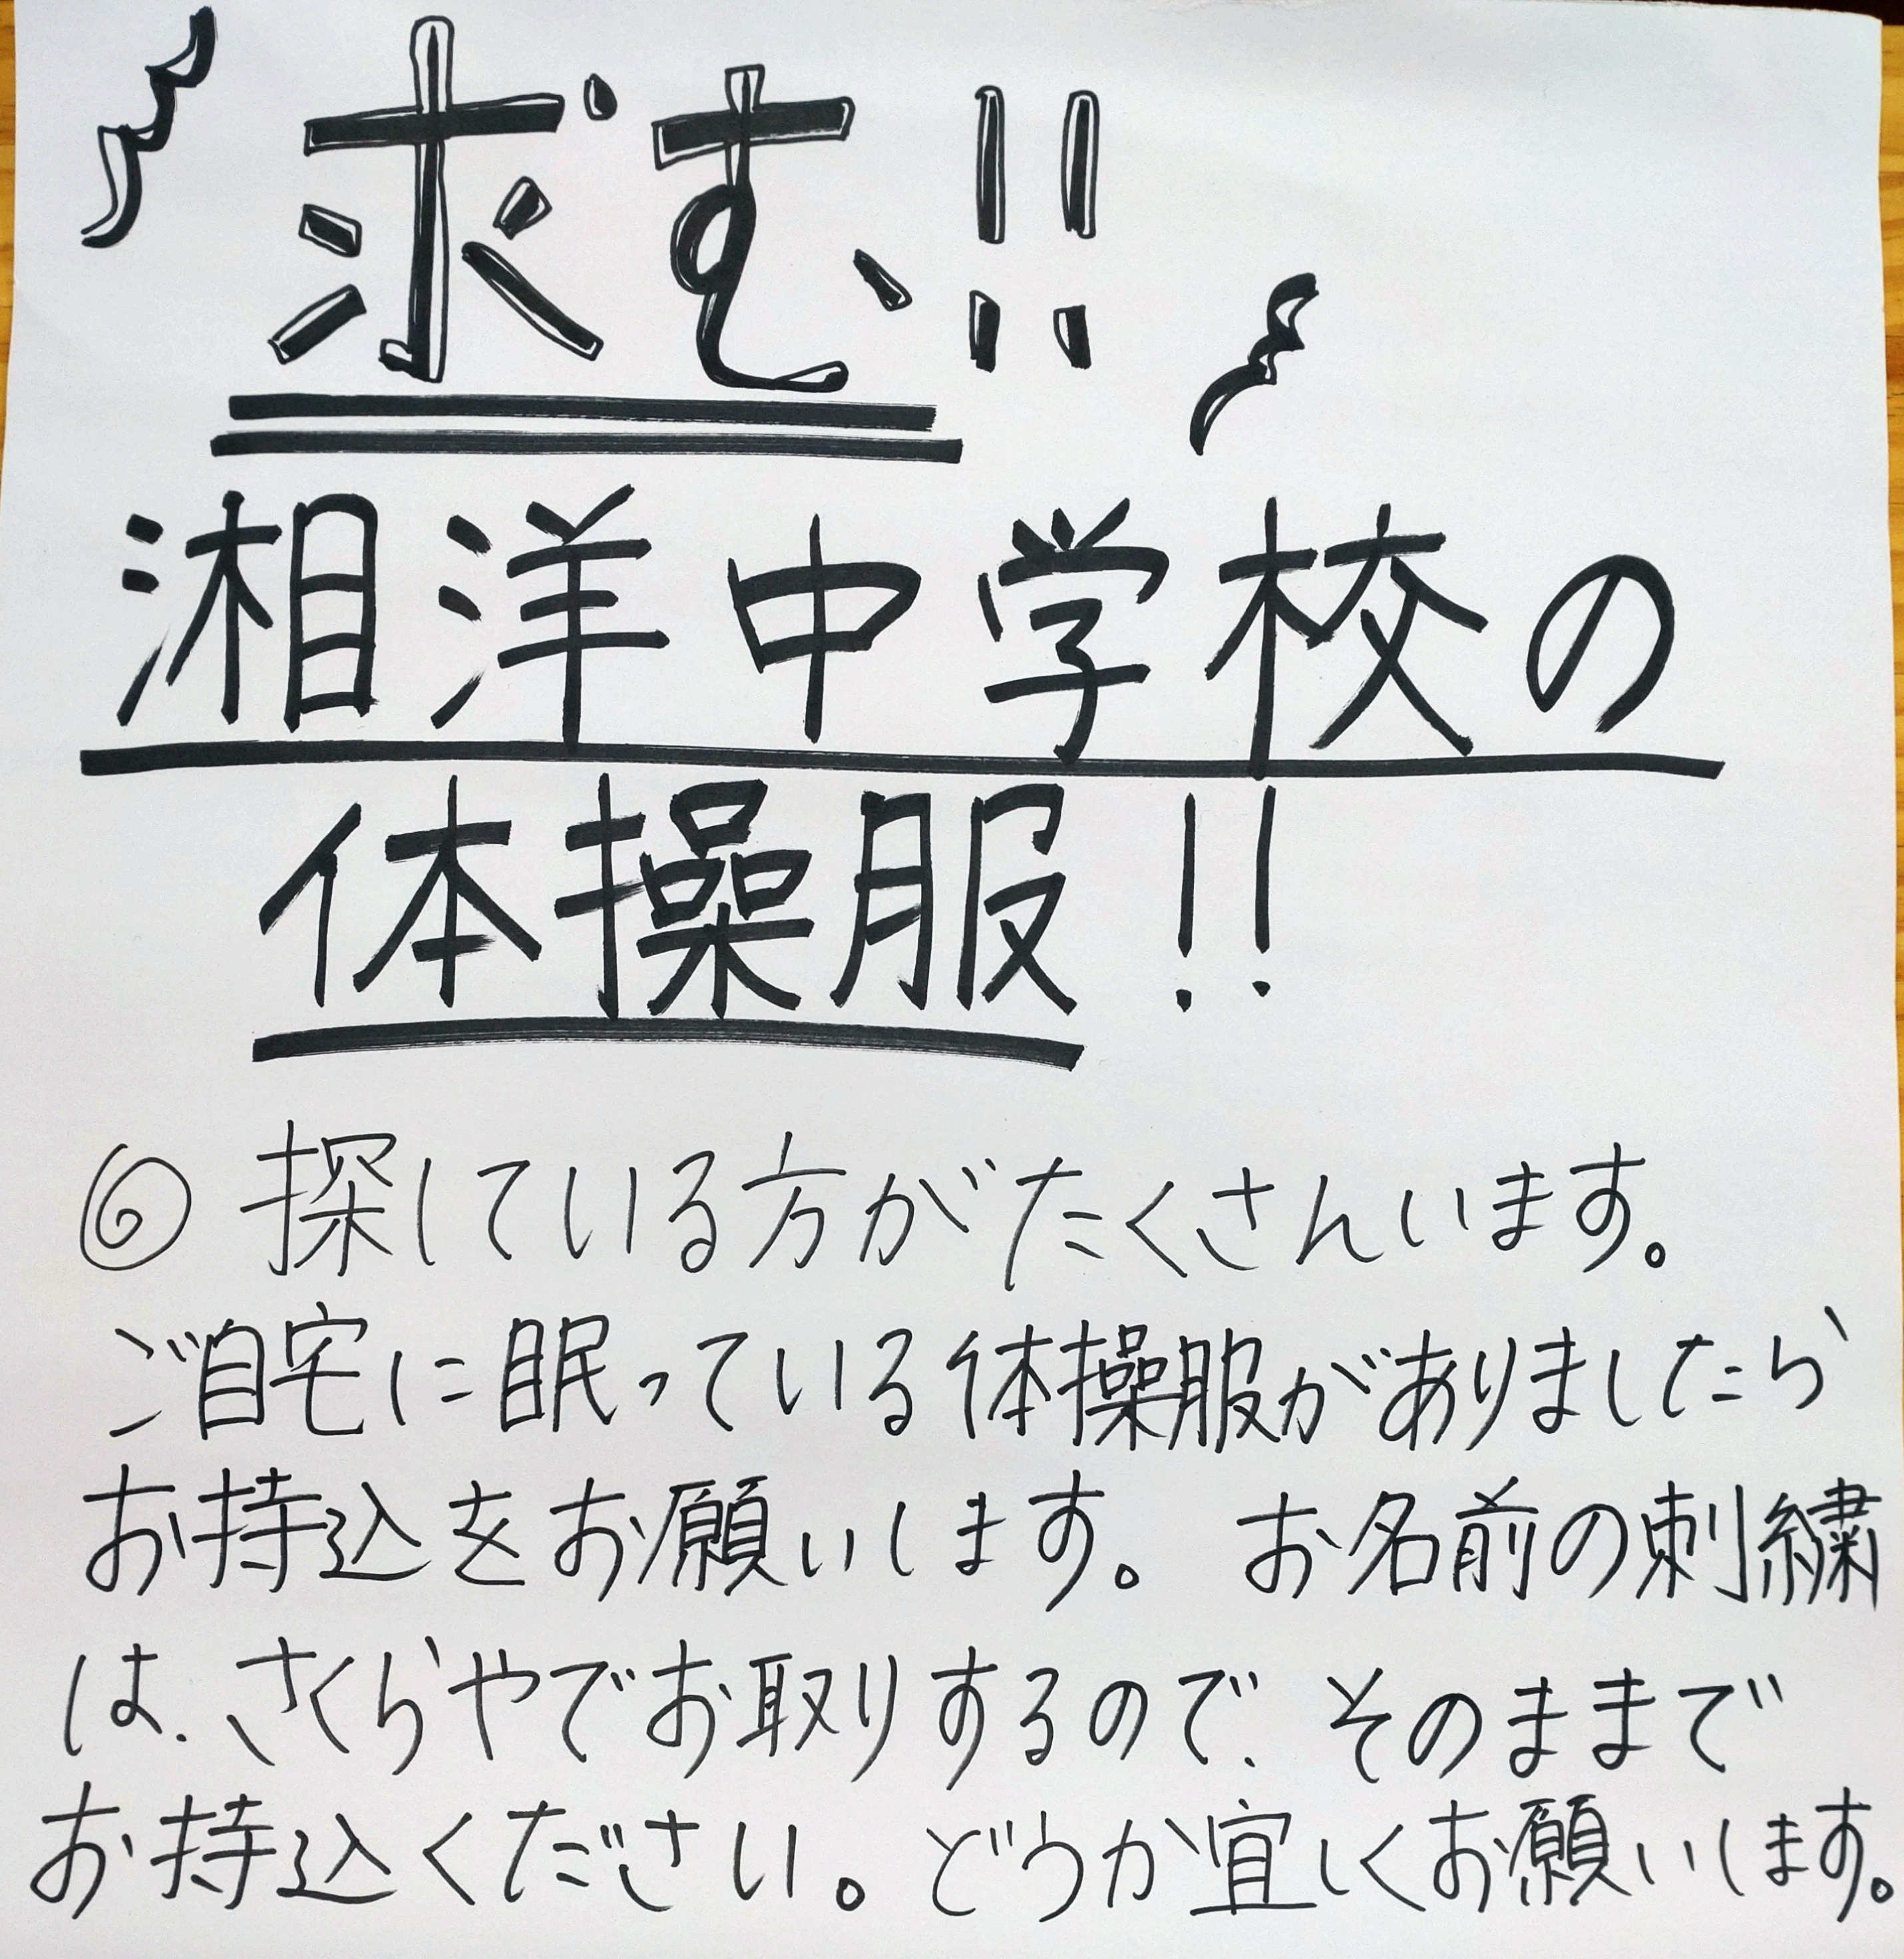 求む!!
湘洋中学校の
体操服!!
◎ 探している方がたくさんいます。
ご自宅に眠っている体操服がありましたら
お持込をお願いします。 お名前の刺繍
は、さくらやでお取りするので、そのままで
お持込ください。どうか宜しくお願いします。